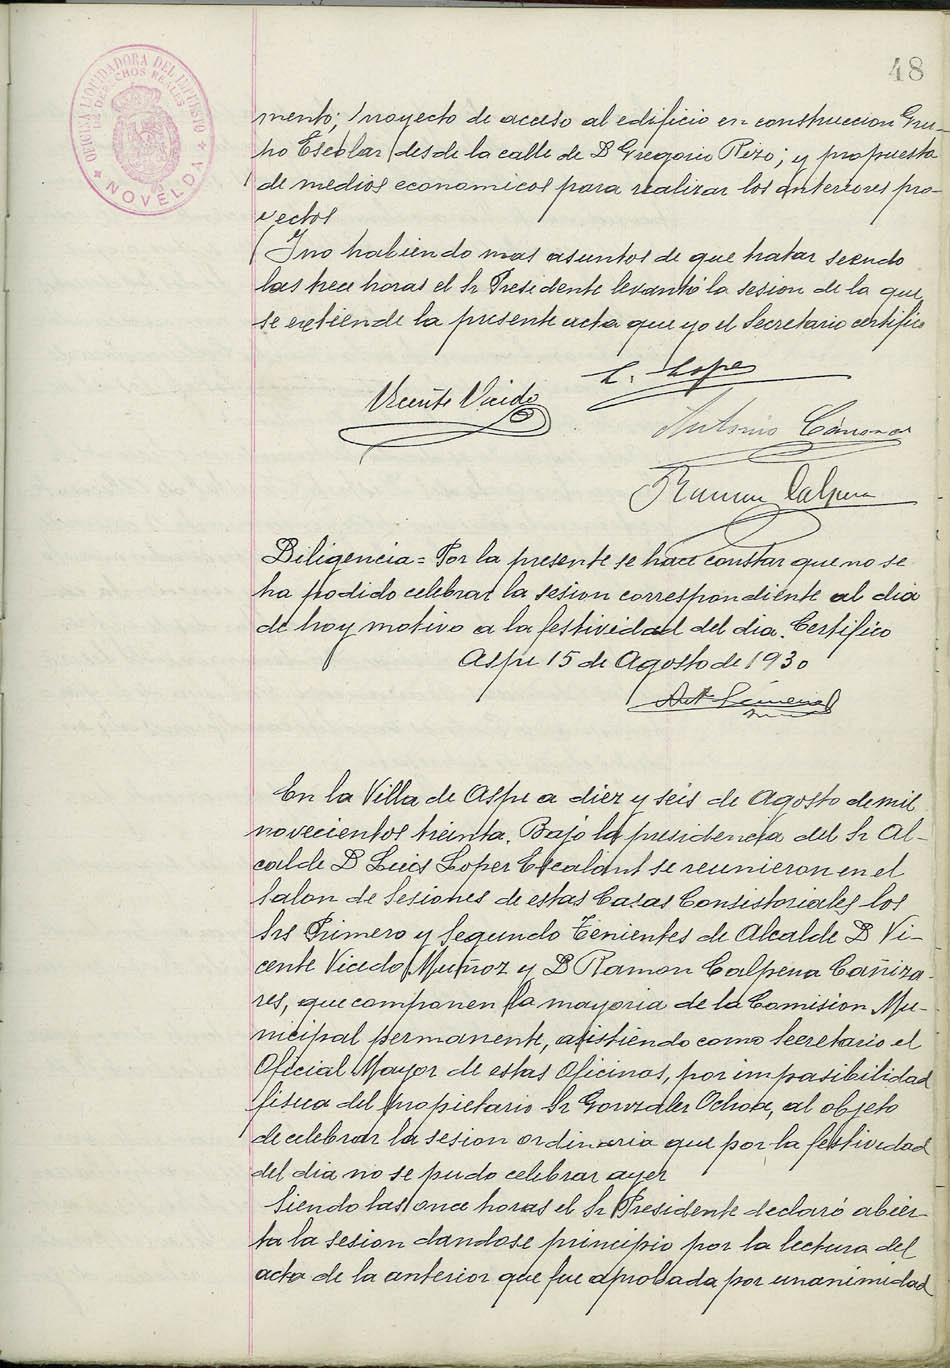 48
OFICINA LIQUIDADORA DEL IMPUESTO
DE DERECHOS REALES
NOVELDA
mento; Proyecto de acceso al edificio en construccion Gru-
po Escolar desde la calle de D Gregorio Rizo; y propuesta
de medios economicos para realizar los anteriores pro-
yectos
Y no habiendo mas asuntos de que tratar seendo
las trece horas el Sr Presidente levantó la sesion de la que
se extiende la presente acta que yo el Secretario certifico
L. Lopez
Vicente Vicedo
Antonio Cánovas
Ramon Calpena
Diligencia = Por la presente se hace constar que no se
ha podido celebrar la sesion correspondiente al dia
de hoy motivo a la festividad del dia. Certifico
Aspe 15 de Agosto de 1930
En la Villa de Aspe a diez y seis de Agosto de mil
novecientos treinta. Bajo la presidencia del Sr Al-
calde D Luis Lopez Escalant se reunieron en el
Salon de Sesiones de estas Casas Consistoriales los
Srs Primero y Segundo Tenientes de Alcalde D Vi-
cente Vicedo Muñoz y D Ramon Calpena Cañiza-
res, que componen la mayoria de la Comision Mu-
nicipal permanente, asistiendo como Secretario el
Oficial Mayor de estas Oficinas, por imposibilidad
fisica del propietario Sr Gonzalez Ochoa, al objeto
de celebrar la sesion ordinaria que por la festividad
del dia no se pudo celebrar ayer
Siendo las once horas el Sr Presidente declaró abier-
ta la sesion dandose principio por la lectura del
acta de la anterior que fue aprobada por unanimidad